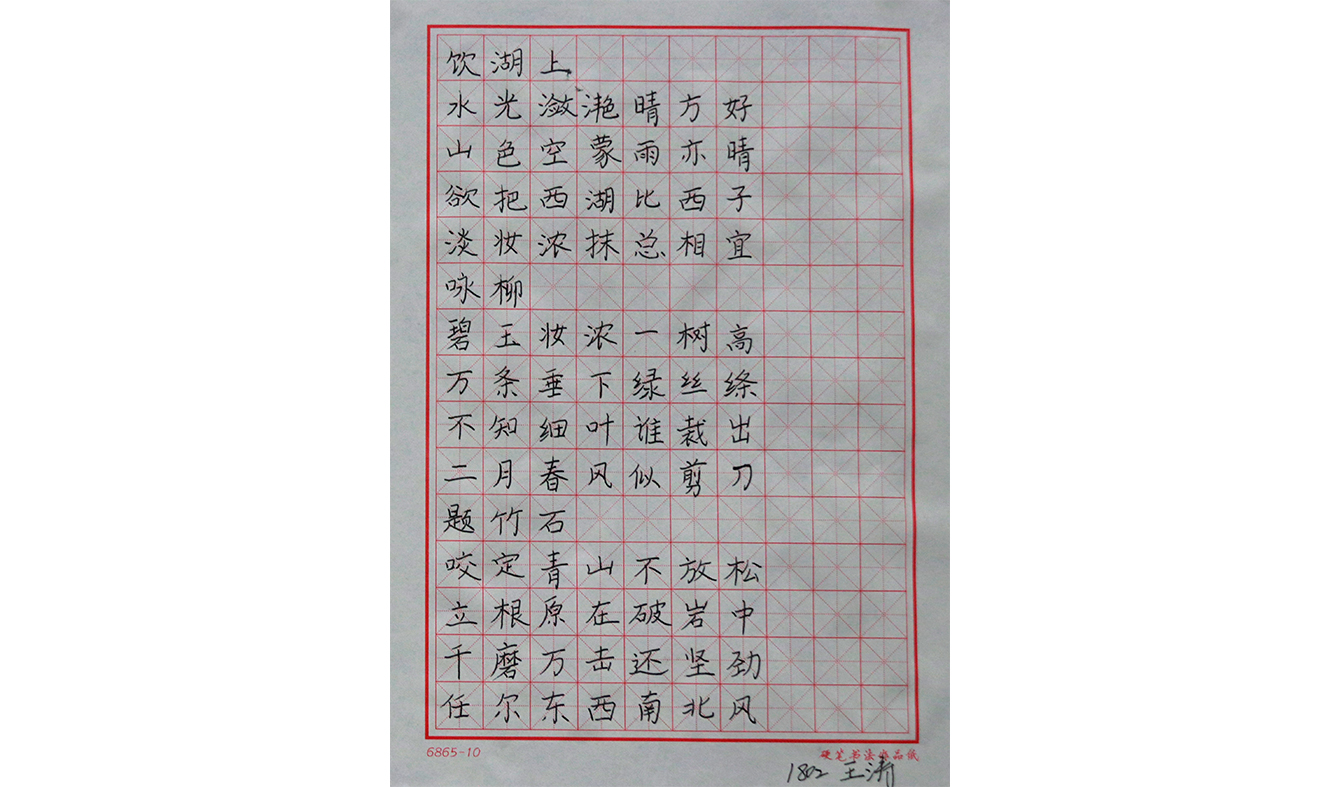 饮湖上
水光潋滟晴方好
山色空蒙雨亦晴
欲把西湖比西子
淡妆浓抹总相宜
咏柳
碧玉妆浓一树高
万条垂下绿丝绦
不知细叶谁裁出
二月春风似剪刀
题竹石
咬定青山不放松
立根原在破岩中
千磨万击还坚劲
任尔东西南北风
6865-10
硬笔书法作品纸
1802 王涛